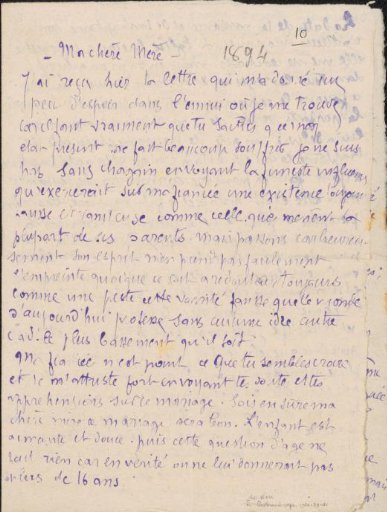 10
- Ma chère Mère - 1894
J'ai reçu hier ta lettre qui m'a donné un
peu d'espoir dans l'ennui où je me trouve
car il faut vraiment que tu saches que mon
état présent me fait beaucoup souffrir je ne suis
pas sans chagrin en voyant la funeste influence
qu'exercerait sur ma fiancée une existence
fausse et comme celle que mènent la
plupart de ses parents. mais passons
sement son esprit n'en point pas
l'empreinte quoique ce soit à redouter toujours
comme une peste cette vanité fausse que le monde
d'aujourd'hui professe sans aucune idée autre
c'a.d. le plus bassement qu'il soit.
Ma fiancée n'est point ce que tu sembles croire
et je m'attriste fort en voyant tes doutes et tes
appréhensions sur ce mariage. Sois en sûre ma
chère mère ce mariage sera bon. L'enfant est
aimante et douce. puis cette question d'âge ne
fait rien car en vérité on ne lui donnerait pas
de 16 ans.